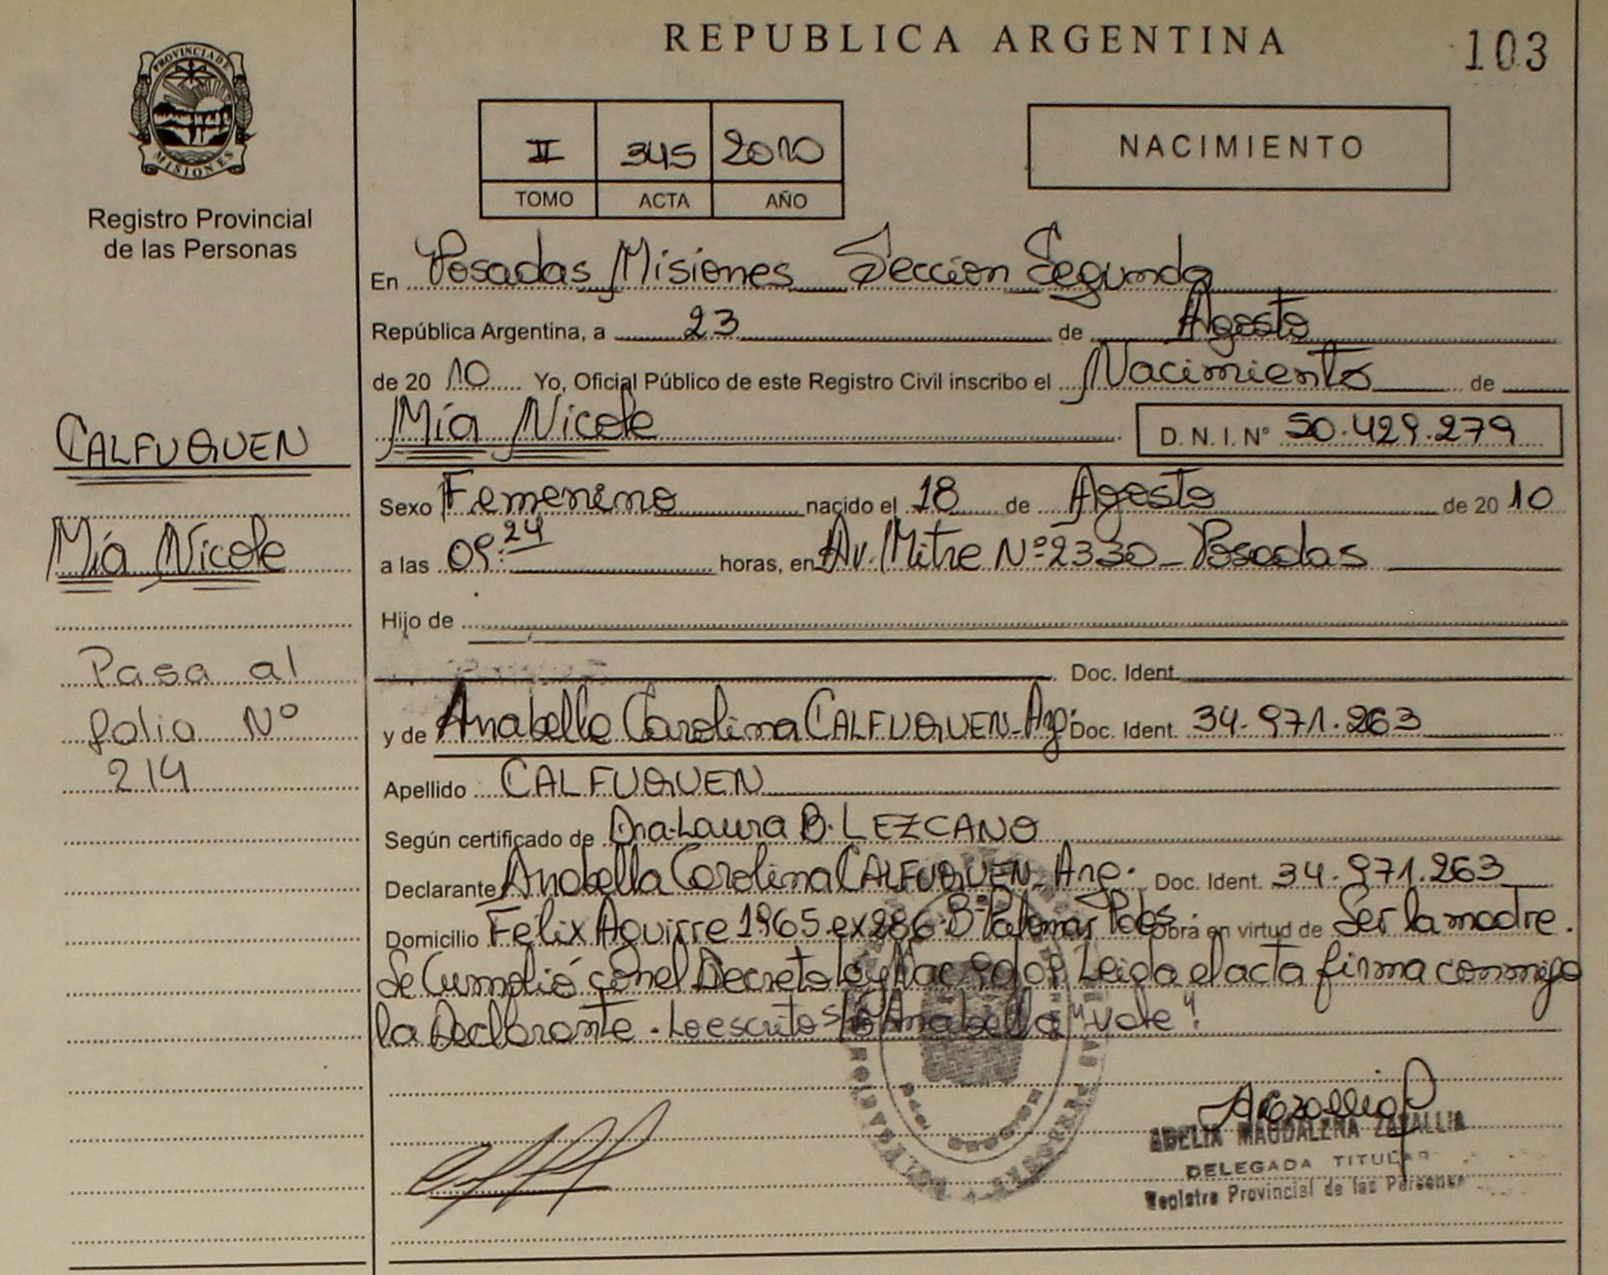 REPUBLICA ARGENTINA
103
PROVINCIA DE
MISIONES
Registro Provincial
de las Personas
II 345 2010
TOMO ACTA AÑO
NACIMIENTO
En Posadas Misiones Sección Segunda
República Argentina, a 23 de Agosto
de 20 10 Yo, Oficial Público de este Registro Civil inscribo el Nacimiento de
Mía Nicole D. N. I. N° 50.429.279
CALFUQUEN
Mía Nicole
Pasa al
folio Nº
214
Sexo Femenino nacido el 18 de Agosto de 20 10
a las 09:24 horas, en Av. Mitre Nº 2330 - Posadas
Hijo de
Doc. Ident.
y de Anabella Carolina CALFUQUEN - Arg. Doc. Ident. 34.971.263
Apellido CALFUQUEN
Según certificado de Dra. Laura B. LEZCANO
Declarante Anabella Carolina CALFUQUEN - Arg. Doc. Ident. 34.971.263
Domicilio Félix Aguirre 1965 ex 286 Bº Palomar Pdas. Obra en virtud de Ser la madre.
Se Cumplió con el Decreto Ley Nac. Leida el acta firma conmigo
la Declarante. Lo escrito s/ Anabella "vale".
ADELIA MAGDALENA ZAVALLIA
DELEGADA TITULAR
Registro Provincial de las Personas